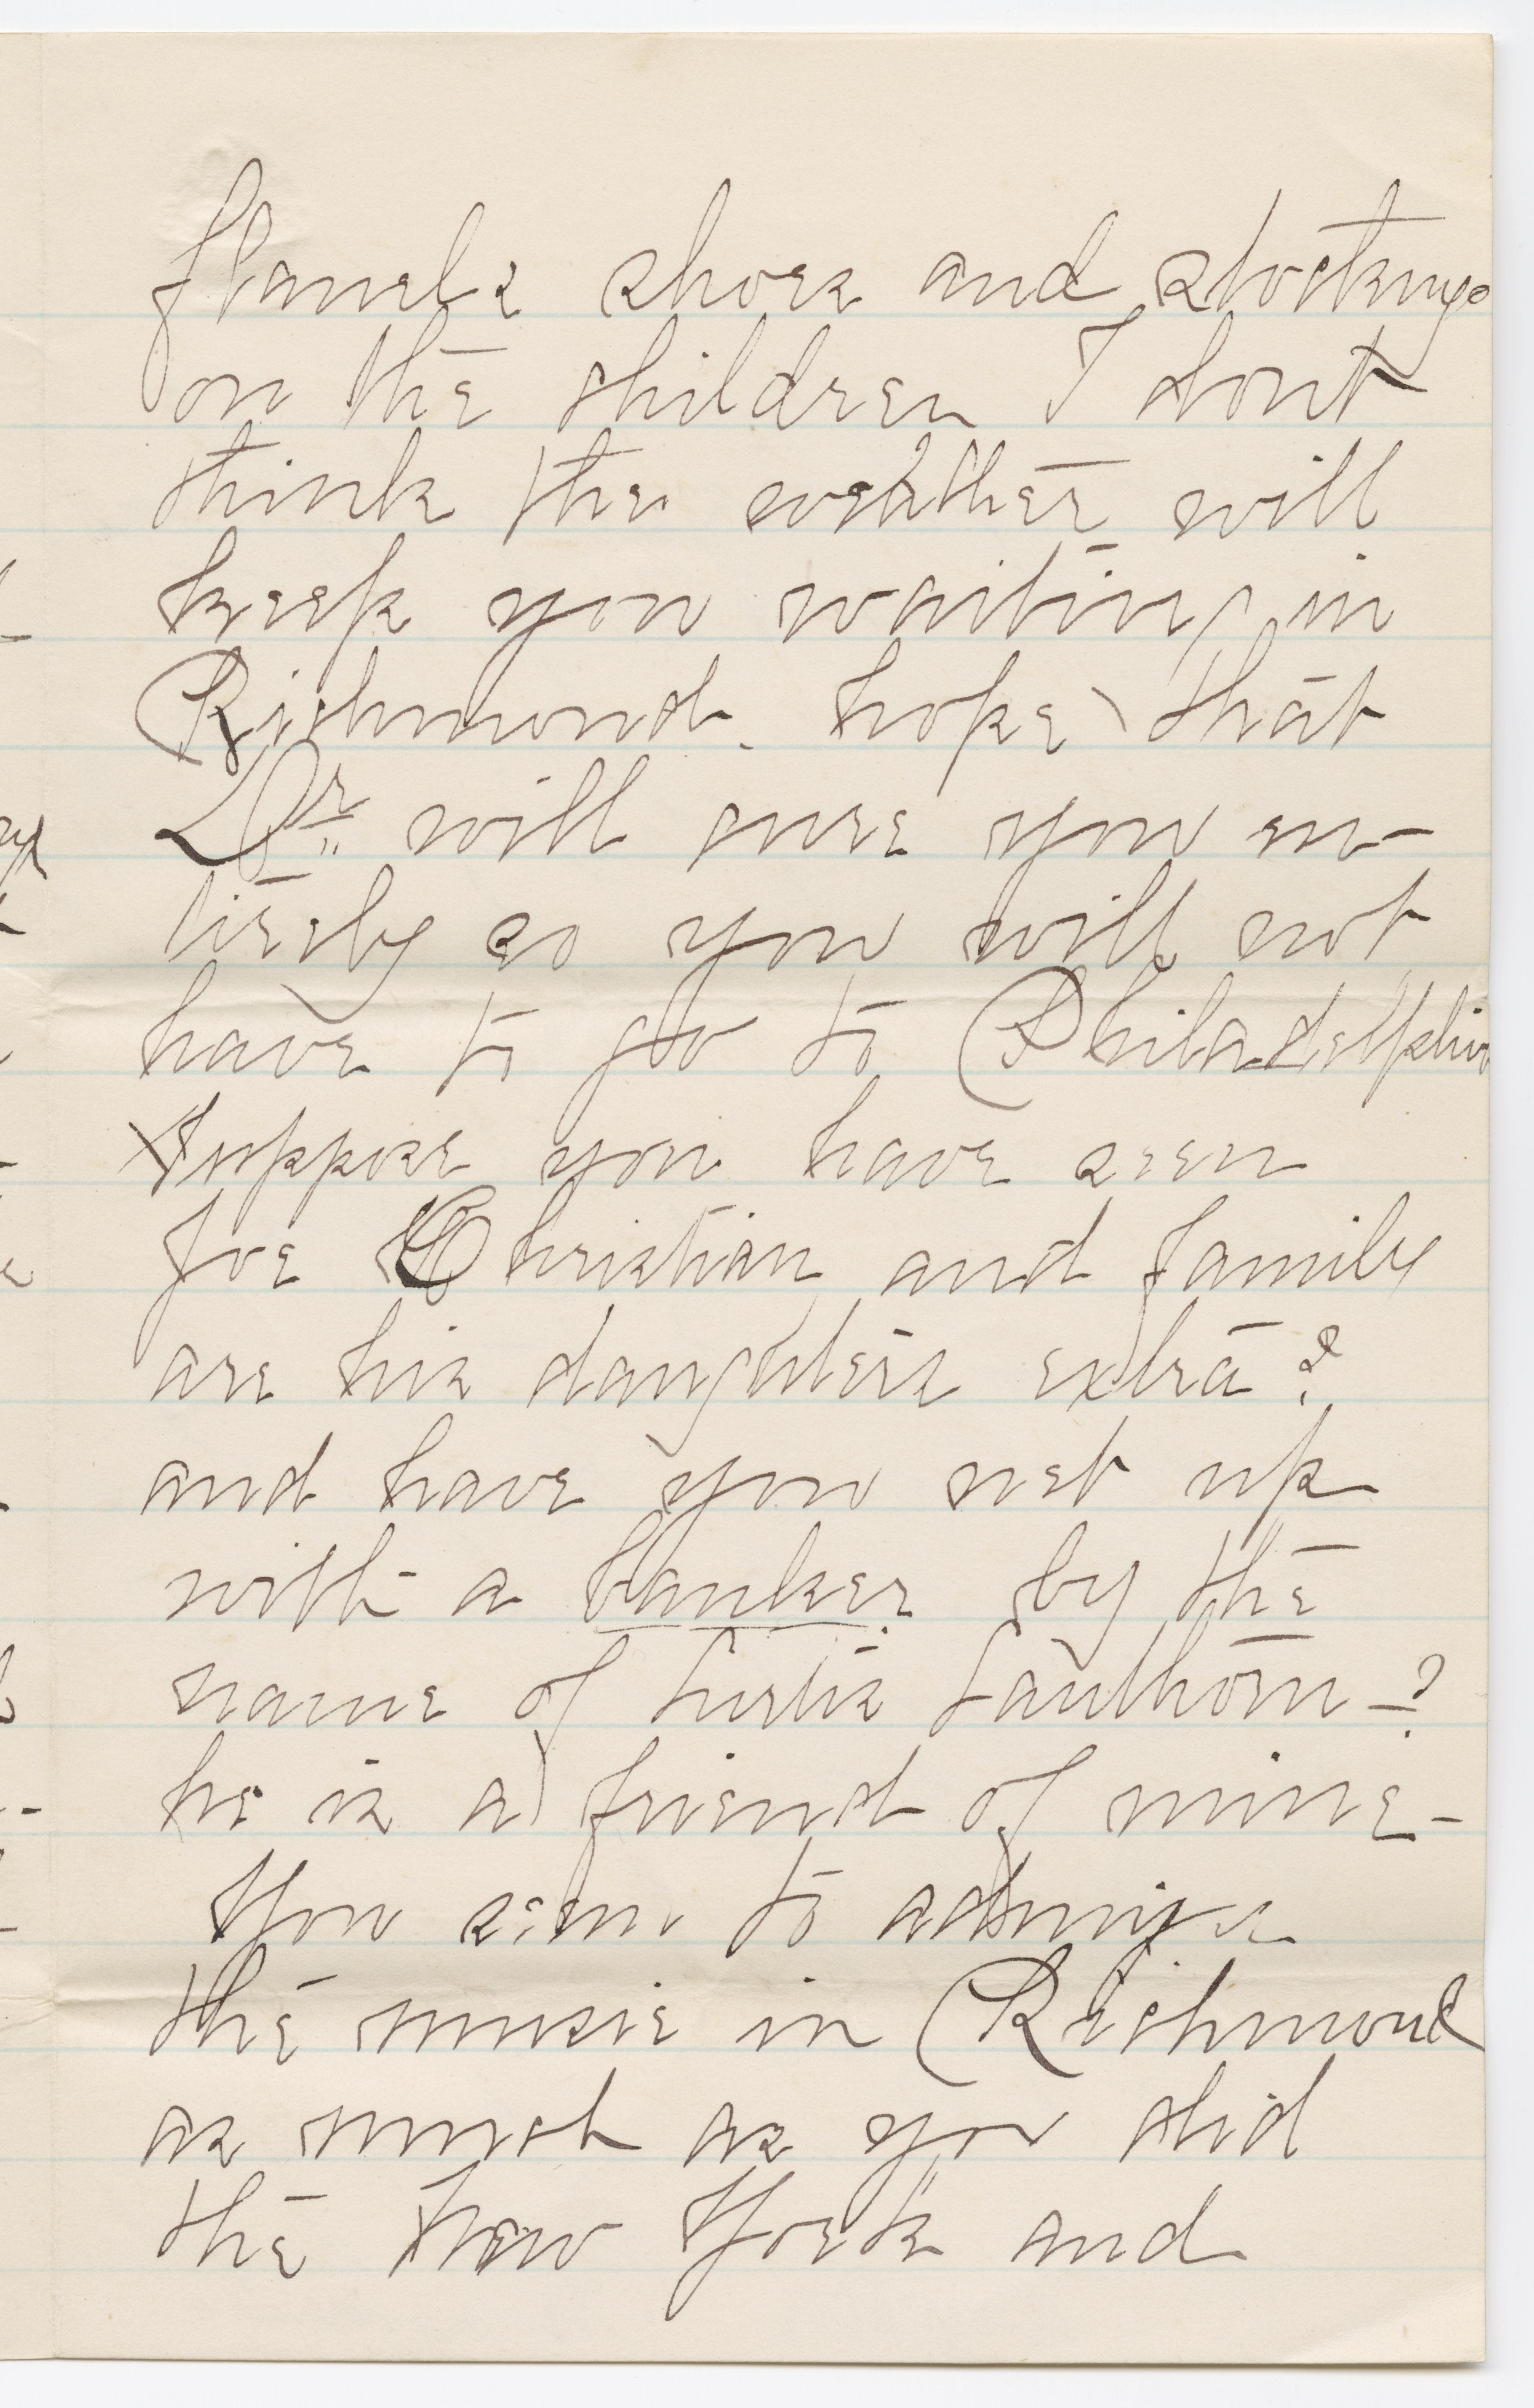 flanels shoes and stockings
on the children I dont
think the weather will
keep you waiting in
Richmond. hope that
Dr. will cure you en-
tirely so you will not
have to go to Philadelphia
Suppose you have seen
Joe Christian and family
are his daughters extra?
and have you met up
with a banker by the
name of Fauthorn-?
he is a friend of mine-
You seem to admire
the music in Richmond
as much as you did
the New York and